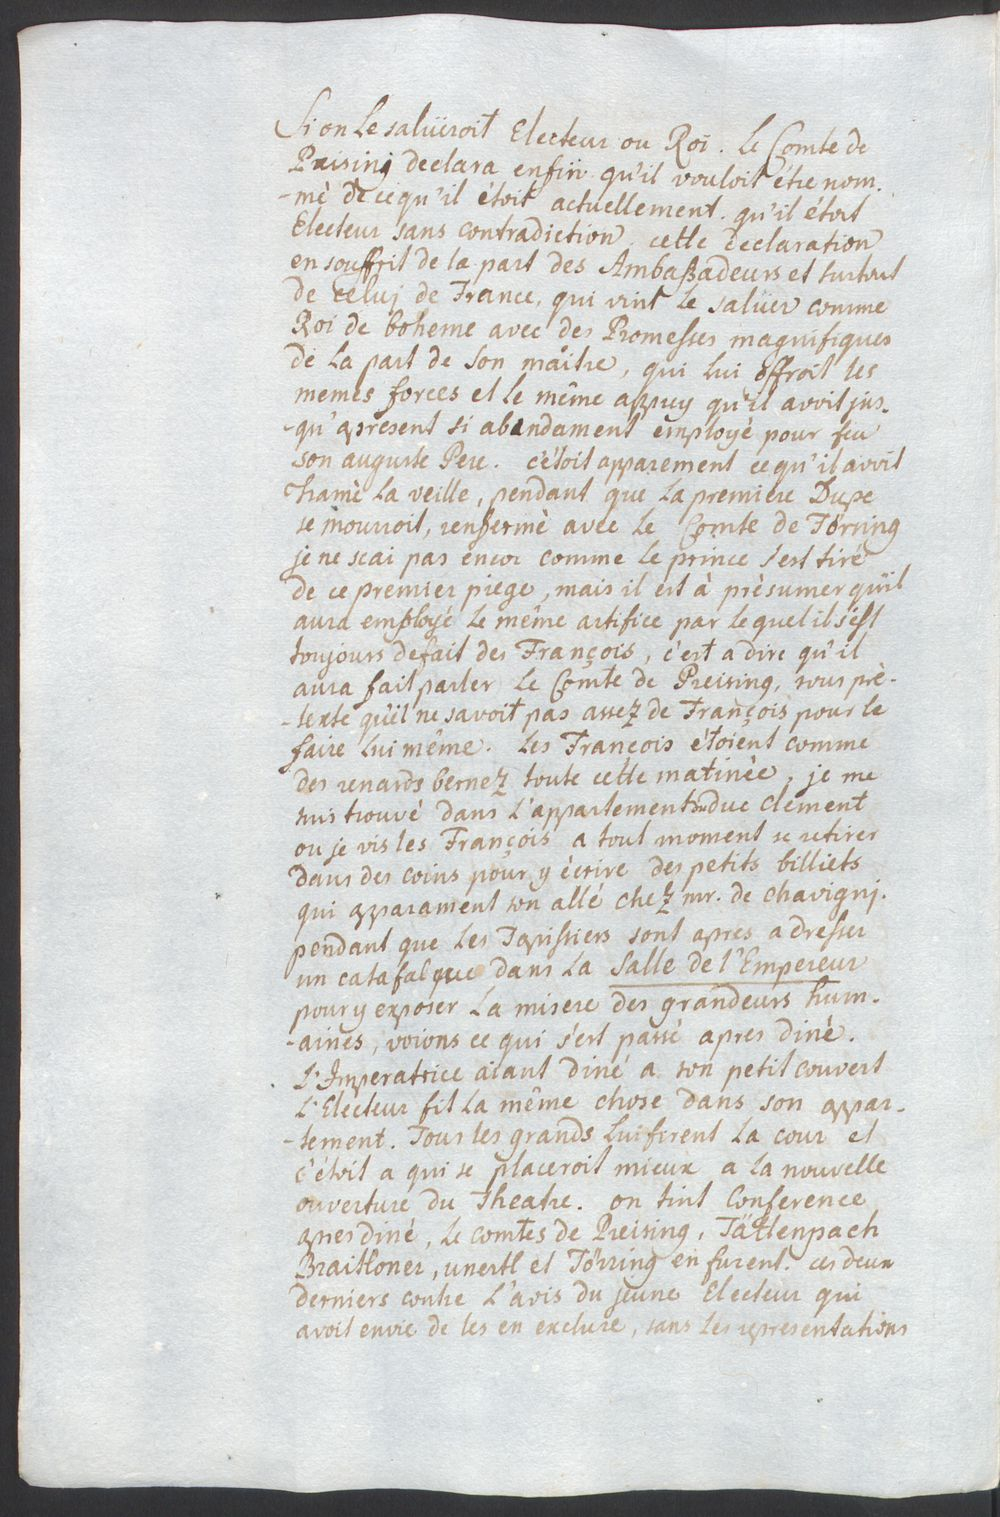 Si on Le salüeroit Electeur ou Roi. Le Comte de
Preising declara enfin qu'il vouloit étre nom-
-mè de ce qu'il étoit actuellement. qu'il étoit
Electeur sans contradiction. cette declaration
en souffrit de la part des Ambaßadeurs et surtout
de celuj de France, qui vint le salüer comme
Roi de boheme avec des Promesses magnifiques
de La part de Son maitre, qui lui offroit les
memes forces et le même appuy qu'il avoit jus-
-qu'apresent si abondament employé pour feu
son auguste Pere. c'étoit apparement ce qu'il avoit
tramè La veille, pendant que La premiere Dupe
se mourroit, renfermè avec Le Comte de Törring
je ne scai pas encor comme Le prince s'est tiré
de ce premier piege, mais il est à prèsumer qu'il
aura employé Le même artifice par le quel il s'est
toujours defait des François, c'est a dire qu'il
aura fait parler Le Comte de Preising, sous prè-
-texte qu'il ne savoit pas assez de François pour le
faire Lui même. Les François étoient comme
des renards bernez toute cette matinèe, je me
suis trouvé dans L'appartement du duc Clement
ou je vis les François a tout moment se retirer
dans des coins pour y écrire des petits billiets
qui apparament son allé chez mr. de chavignj.
pendant que Les Tapissiers sont apres a dresser
un catafalque dans La Salle de l'Empereur
pour y exposer La misere des grandeurs hum-
-aines, voions ce qui s'est passé apres dinè.
L'Imperatrice aiant diné a son petit couvert
L'Electeur fit La même chose dans son appar-
-tement. Tous les grands Lui firent La cour et
c'étoit a qui se placeroit mieux a la nouvelle
ouverture du Theatre. on tint Conference
apres diné, Le comtes de Preising, Tättenpach
Braitloner, unertl et Törring en furent. ces deux
derniers contre L'avis du jeune Electeur qui
avoit envie de les en exclure, sans les representations